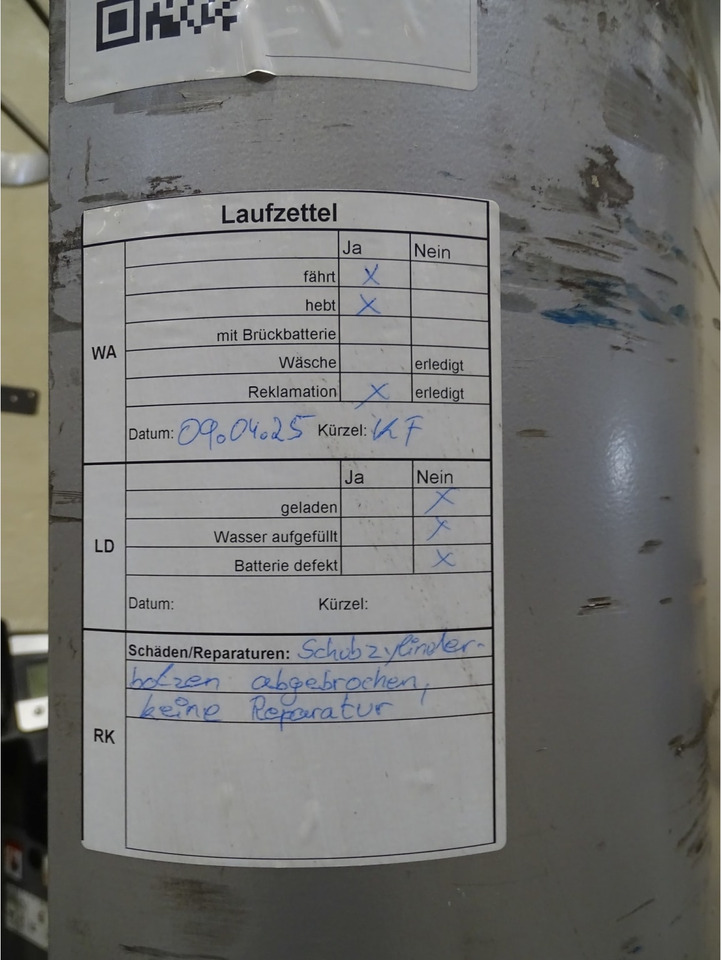 Laufzettel
WA
Ja Nein
fährt X
hebt X
mit Brückbatterie
Wäsche erledigt
Reklamation X erledigt
Datum: 09.04.25 Kürzel: KF
LD
Ja Nein
geladen X
Wasser aufgefüllt X
Batterie defekt X
Datum: Kürzel:
RK
Schäden/Reparaturen: Schubzylinder-
bolzen abgebrochen,
keine Reparatur